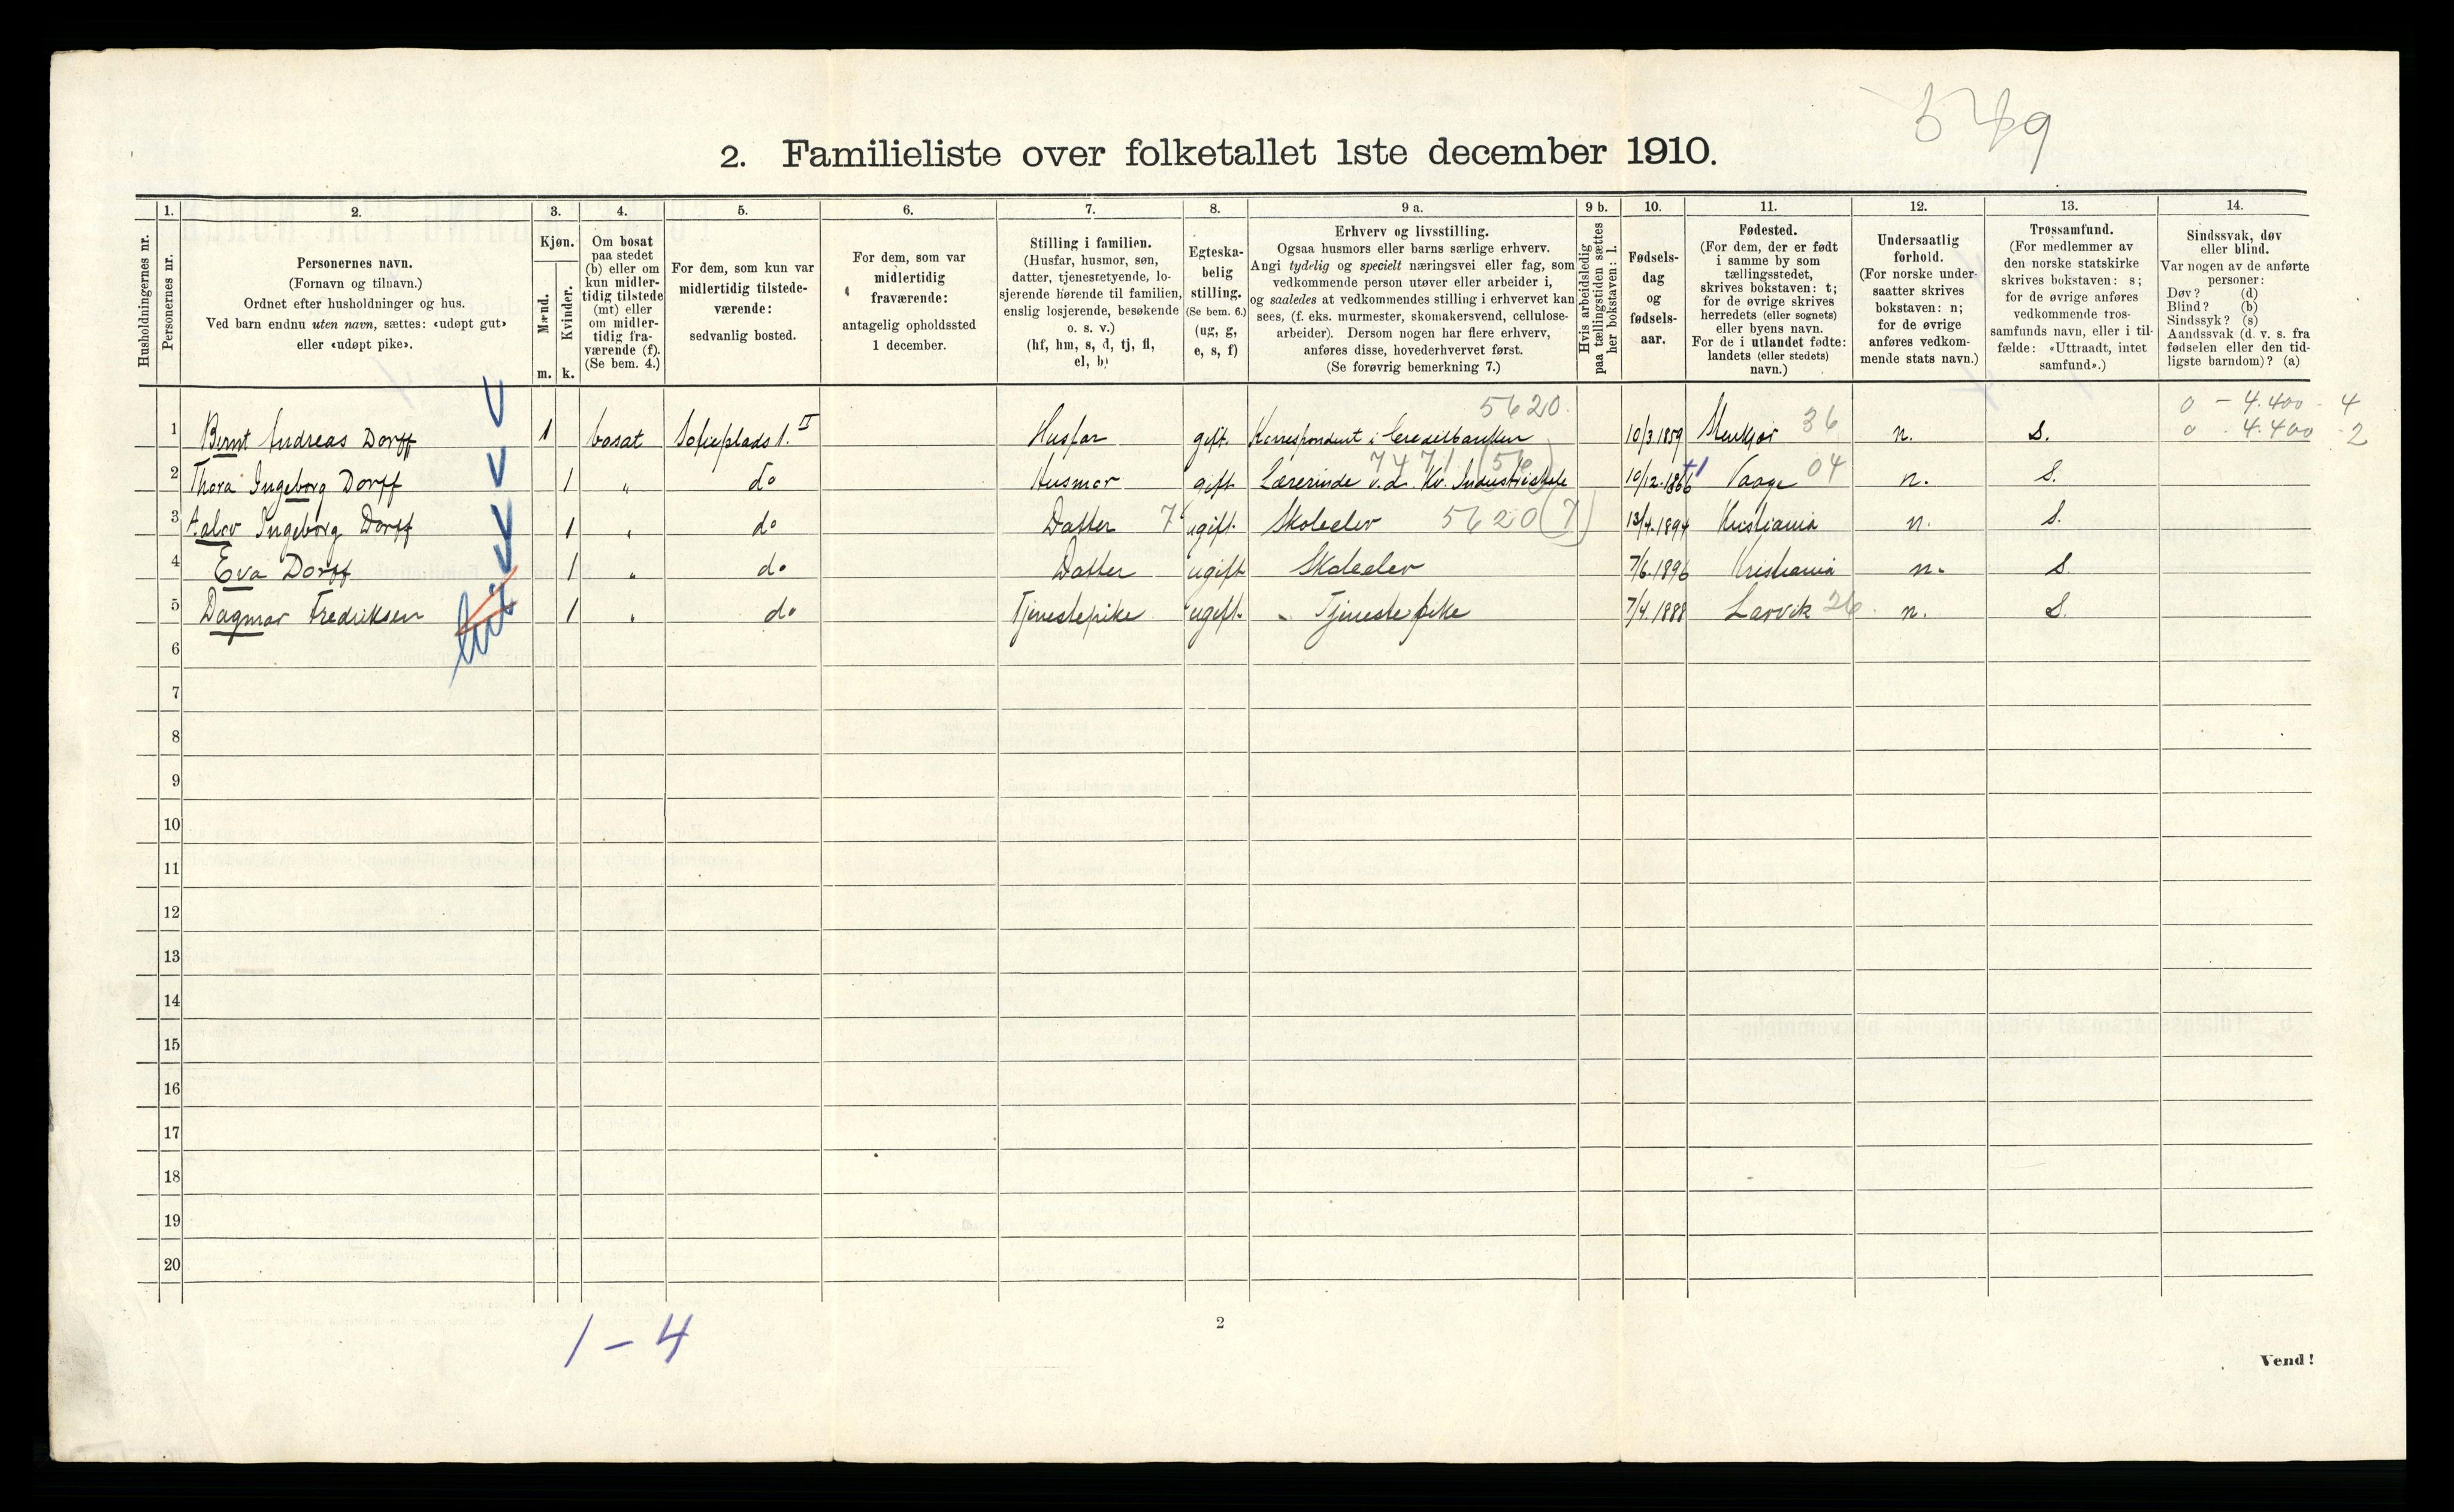 549
2. Familieliste over folketallet 1ste december 1910.
Husholdningernes nr.
1.
Personernes nr.
2.
Personernes navn.
(Fornavn og tilnavn.)
Ordnet efter husholdninger og hus.
Ved barn endnu uten navn, sættes: «udøpt gut»
eller «udøpt pike».
3.
Kjøn.
Mænd.
Kvinder.
m. k.
4.
Om bosat
paa stedet
(b) eller om
kun midler-
tidig tilstede
(mt) eller
om midler-
tidig fra-
værende (f).
(Se bem. 4.)
5.
For dem, som kun var
midlertidig tilstede-
værende:
sedvanlig bosted.
6.
For dem, som var
midlertidig
fraværende:
antagelig opholdssted
1 december.
7.
Stilling i familien.
(Husfar, husmor, søn,
datter, tjenestetyende, lo-
sjerende hørende til familien,
enslig losjerende, besøkende
o. s. v.)
(hf, hm, s, d, tj, fl,
el, b)
8.
Egteska-
belig
stilling.
(Se bem. 6.)
(ug, g,
e, s, f)
9 a.
Erhverv og livsstilling.
Ogsaa husmors eller barns særlige erhverv.
Angi tydelig og specielt næringsvei eller fag, som
vedkommende person utøver eller arbeider i,
og saaledes at vedkommendes stilling i erhvervet kan
sees, (f. eks. murmester, skomakersvend, cellulose-
arbeider). Dersom nogen har flere erhverv,
anføres disse, hovederhvervet først.
(Se forøvrig bemerkning 7.)
9 b.
Hvis arbeidsledig
paa tællingstiden sættes
her bokstaven: l.
10.
Fødsels-
dag
og
fødsels-
aar.
11.
Fødested.
(For dem, der er født
i samme by som
tællingsstedet,
skrives bokstaven: t;
for de øvrige skrives
herredets (eller sognets)
eller byens navn.
For de i utlandet fødte:
landets (eller stedets)
navn.)
12.
Undersaatlig
forhold.
(For norske under-
saatter skrives
bokstaven: n;
for de øvrige
anføres vedkom-
mende stats navn.)
13.
Trossamfund.
(For medlemmer av
den norske statskirke
skrives bokstaven: s;
for de øvrige anføres
vedkommende tros-
samfunds navn, eller i til-
fælde: «Uttraadt, intet
samfund».)
14.
Sindssvak, døv
eller blind.
Var nogen av de anførte
personer:
Døv? (d)
Blind? (b)
Sindssyk? (s)
Aandssvak (d. v. s. fra
fødselen eller den tid-
ligste barndom)? (a)
5620. 0 - 4.400 - 4
1 Bernt Andreas Dorff 1 bosat Sofieplads 1. II Husfar gift. Korrespondent i Creditbanken 10/3.1859 Stenkjær 36 n. S. 0 - 4.400 - 2
7471 (56)
2 Thora Ingeborg Dorff 1 " do Husmor gift Lærerinde v.d. Kv. Industriskole 10/12.1866 Vaage 04 n. S.
3 Aslov Ingeborg Dorff 1 " do Datter 7 ugift. Skoleelev 5620 (7) 13/4.1894 Kristiania n. S.
4 Eva Dorff 1 " do Datter ugift Skoleelev 7/6.1896 Kristiania n. S
5 Dagmar Fredriksen 1 " do Tjenestepike ugift. Tjenestepike 7/4.1888 Larvik 26. n. S.
6
7
8
9
10
11
12
13
14
15
16
17
18
19
20
1 - 4
2
Vend!